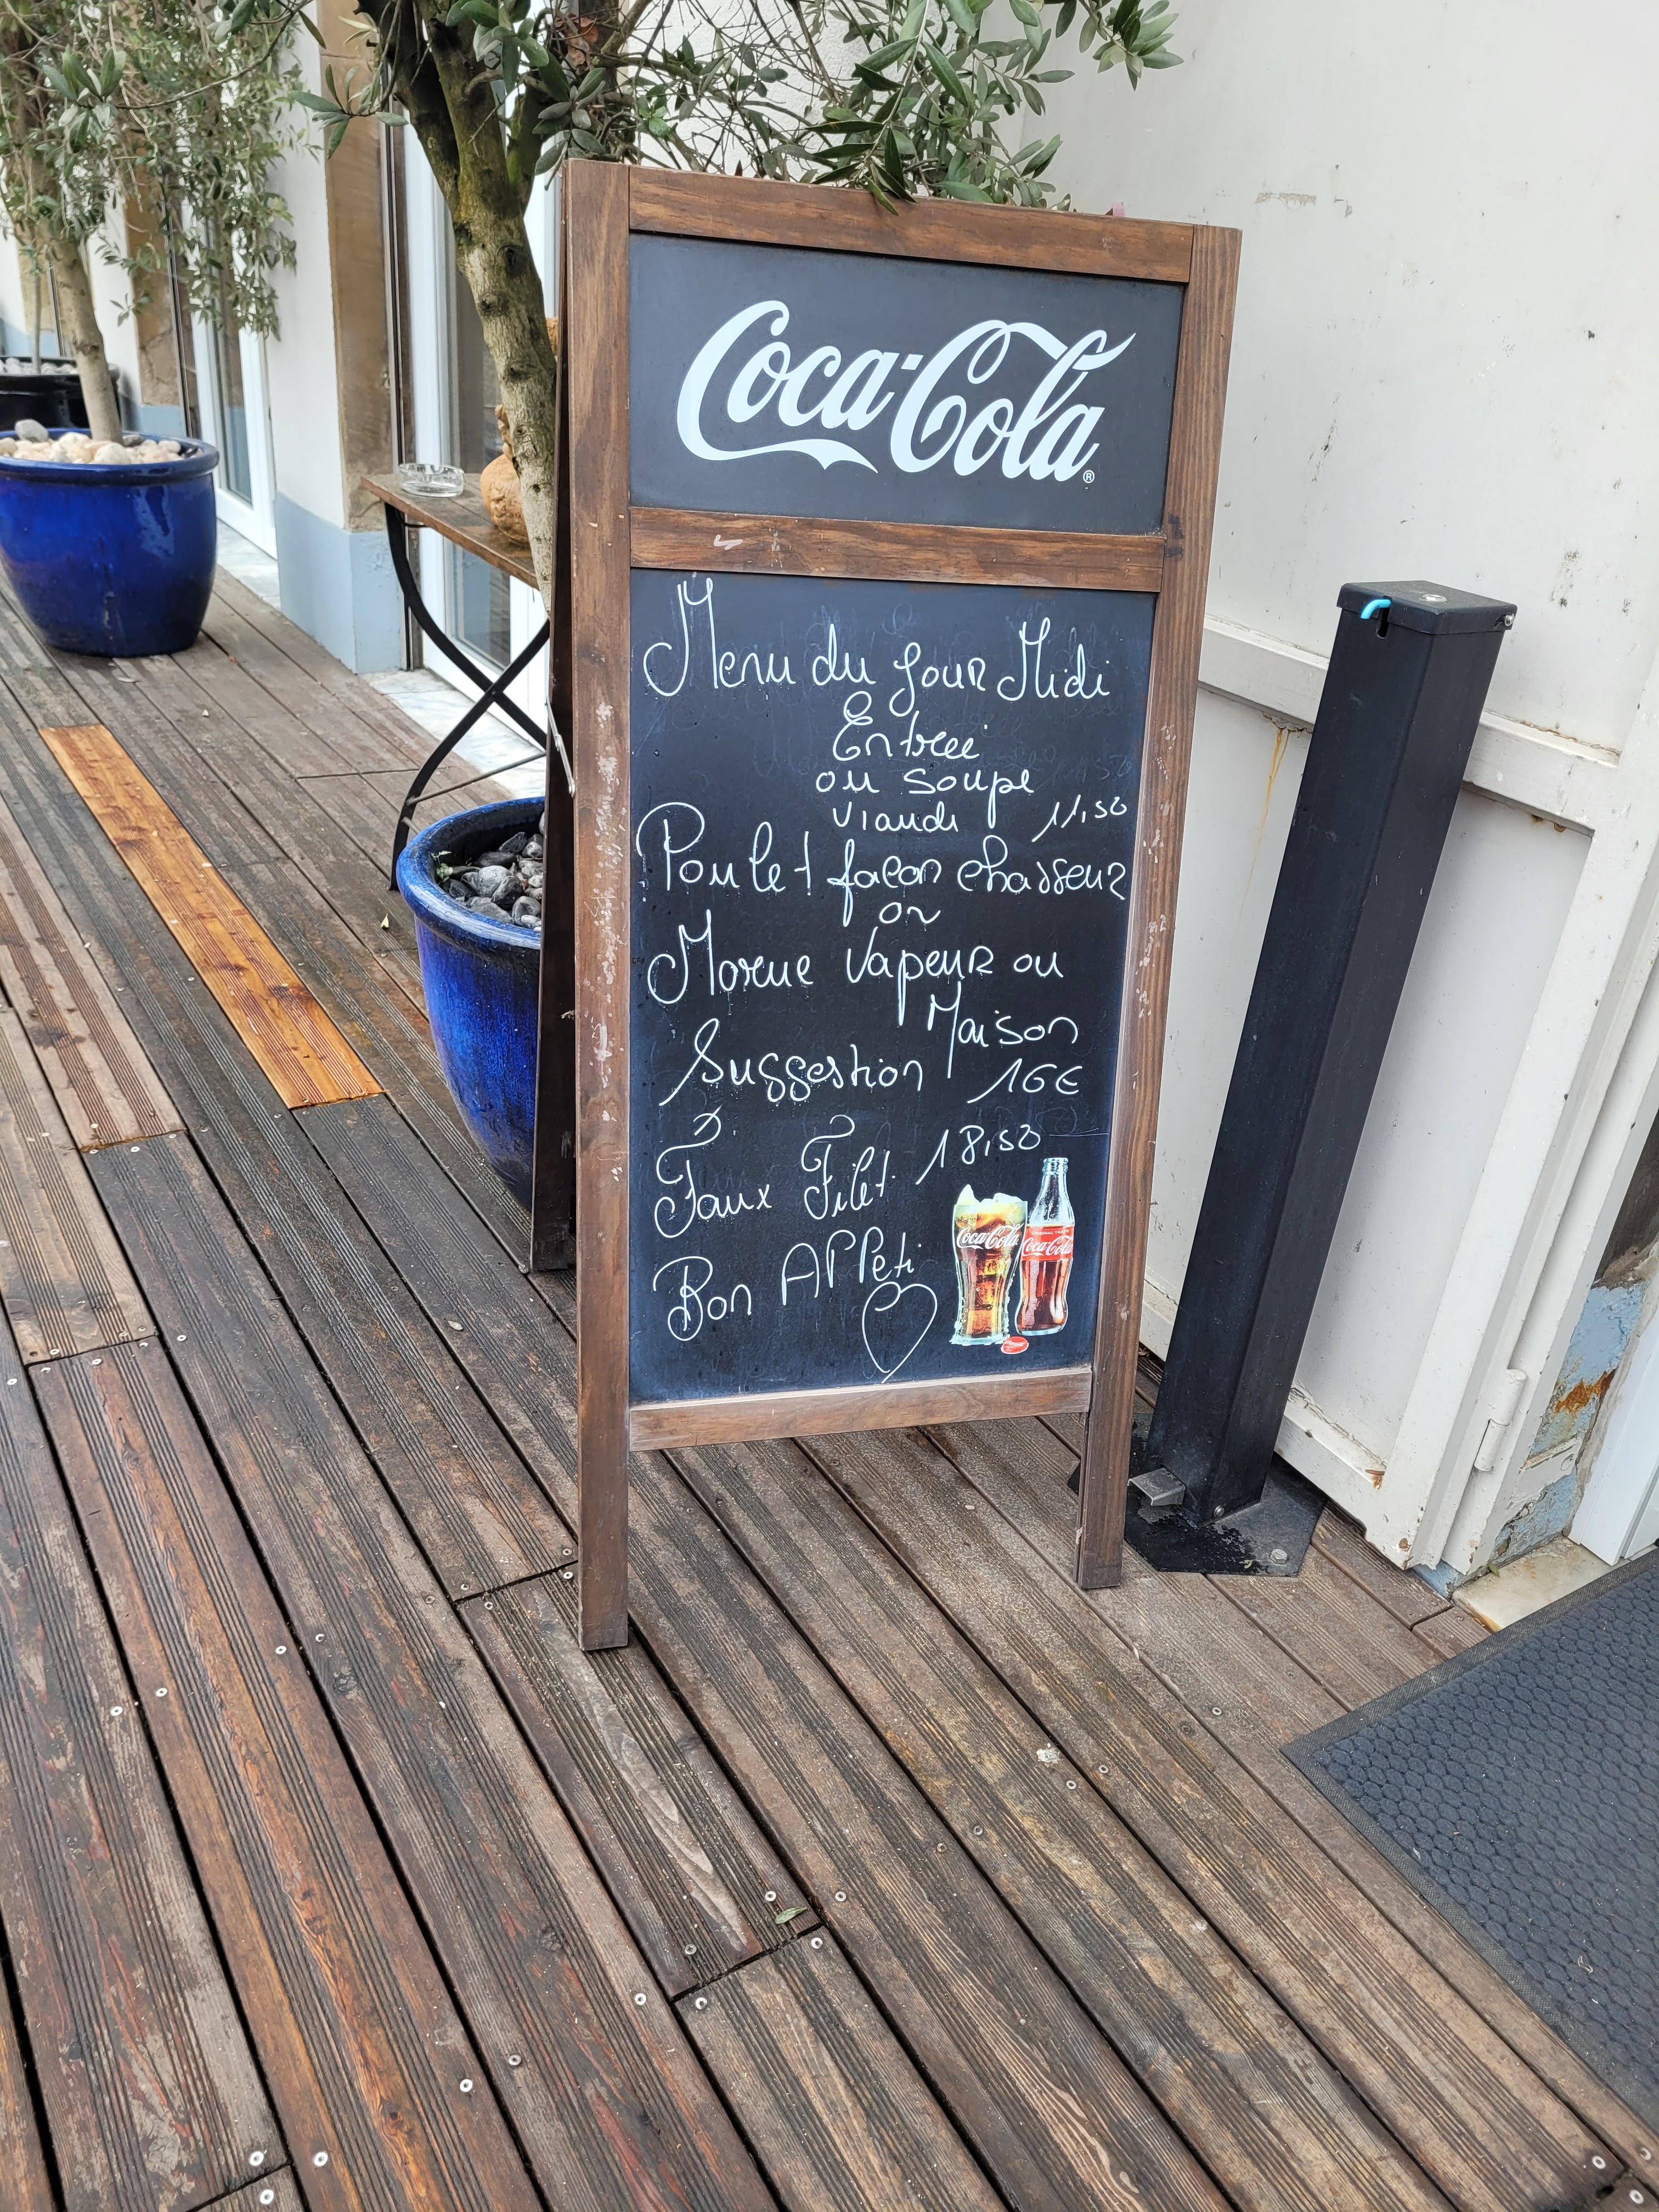 Coca-Cola®
Menu du jour Midi
Entrée
ou soupe
viande 11,50
Poulet façon chasseur
ou
Morue vapeur ou
Maison
Suggestion 16€
Faux Filet 18,50
Bon APPeti
Coca-Cola
Coca-Cola